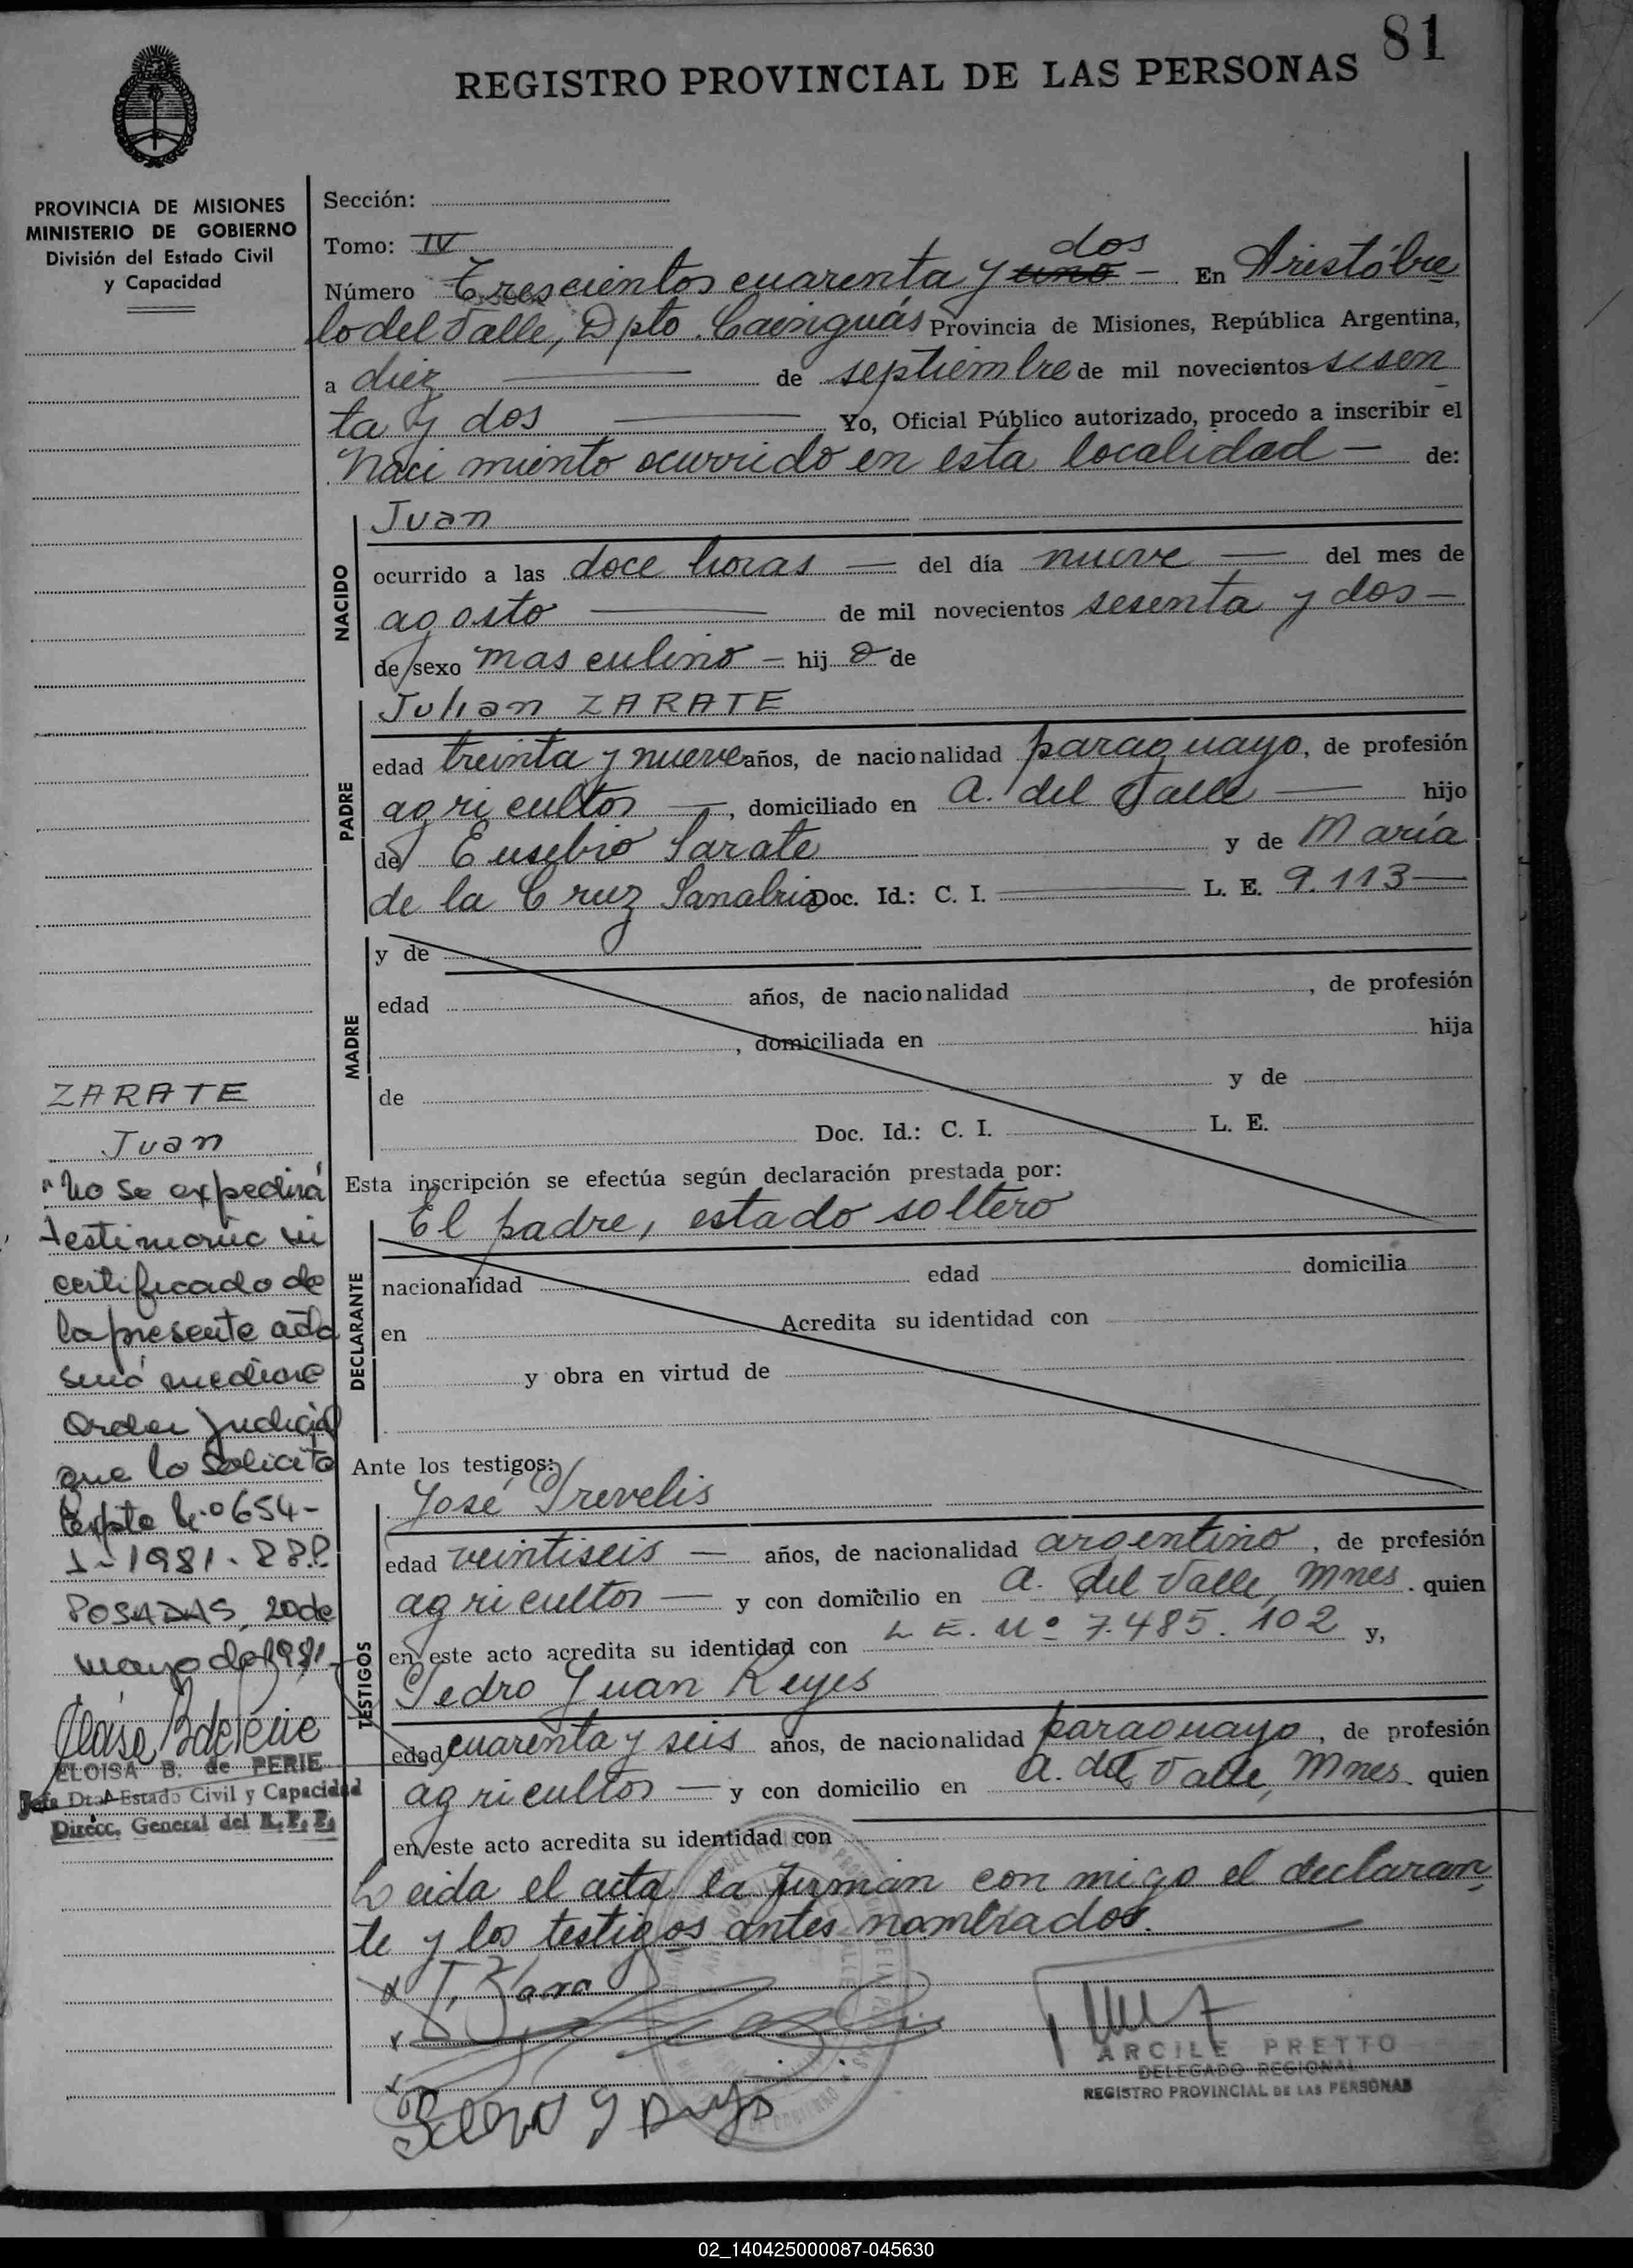 81
REGISTRO PROVINCIAL DE LAS PERSONAS
PROVINCIA DE MISIONES
MINISTERIO DE GOBIERNO
División del Estado Civil
y Capacidad
Sección:
Tomo: IV
dos
Número Trescientos cuarenta y uno — En Aristóbu
lo del Valle, Dpto. Cainguás Provincia de Misiones, República Argentina,
a diez de septiembre de mil novecientos sesen
ta y dos Yo, Oficial Público autorizado, procedo a inscribir el
Nacimiento ocurrido en esta localidad — de:
NACIDO
Juan
ocurrido a las doce horas — del día nueve — del mes de
agosto — de mil novecientos sesenta y dos —
de sexo masculino — hijo de
PADRE
Julian ZARATE
edad treinta y nueve años, de nacionalidad paraguayo, de profesión
agricultor —, domiciliado en A. del Valle — hijo
de Eusebio Sarate y de María
de la Cruz Sanabria Doc. Id.: C. I. — L. E. 9.113 —
MADRE
y de
edad años, de nacionalidad , de profesión
, domiciliada en hija
de y de
Doc. Id.: C. I. L. E.
Esta inscripción se efectúa según declaración prestada por:
El padre, estado soltero
DECLARANTE
nacionalidad edad domicilia
en Acredita su identidad con
y obra en virtud de
Ante los testigos:
TESTIGOS
José Trevelis
edad veintiseis — años, de nacionalidad argentino, de profesión
agricultor — y con domicilio en A. del Valle, Mnes. quien
en este acto acredita su identidad con L. E. Nº 7.485.102 y,
Pedro Juan Reyes
edad cuarenta y seis años, de nacionalidad paraguayo, de profesión
agricultor — y con domicilio en A. del Valle, Mnes. quien
en este acto acredita su identidad con
Leida el acta la firman con migo el declaran
te y los testigos antes nombrados.
ARCILE PRETTO
DELEGADO REGIONAL
REGISTRO PROVINCIAL DE LAS PERSONAS
ZARATE
Juan
"No se expedirá
testimonio ni
certificado de
la presente acta
sinó mediante
Orden Judicial
que lo solicita
Expte Nº 654-
1-1981. R.P.P.
POSADAS, 20 de
mayo de 1981
ELOISA B. de PERIE
Jefa Dto. Estado Civil y Capacidad
Direcc. General del R. P. P.
02_140425000087-045630